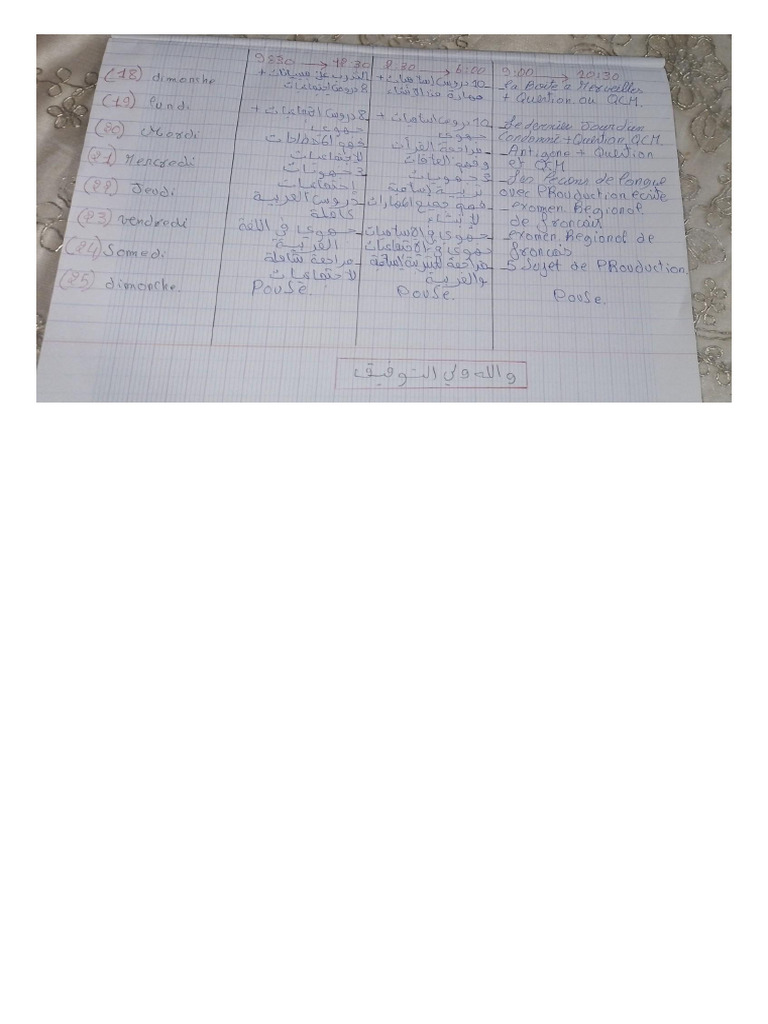 9830 → 12:30 2:30 → 6:00 9:00 → 20:30
(18) dimanche
8 دروس اجتماعيات
10 دروس إسلاميات +
مهارة من الإنشاء
- La Boite à Merveilles
+ Question ou QCM.
(19) Lundi
8 دروس اجتماعيات +
جهوي
10 دروس اسلاميات +
جهوي
- Le dernier Jour d'un
Condamné + Question, QCM
(20) Mardi
فهم الخطاطات
لاجتماعيات
- مراجعة القرآن
وفهم
- Antigone + Question
et QCM
(21) Mercredi
3 جهويات
إجتماعيات
3 جهويات
تربية إسلامية
- Les leçons de langue
avec PRouduction ecrite
(22) Jeudi
دروس العربية
كاملة
- فهم جميع المهارات
لإنشاء
- examen Regional
de francais
(23) vendredi
- جهوي في اللغة
العربية
- جهوي في الاسلاميات
جهوي في الاجتماعيات
- examen. Regional de
francais
(24) Samedi
- مراجعة شاملة
لاجتماعيات
- مراجعة لتربية إسلامية
والعربية
- 5 Sujet de PRouduction.
(25) dimanche. PauSe. PauSe. PauSe.
والله ولي التوفيق